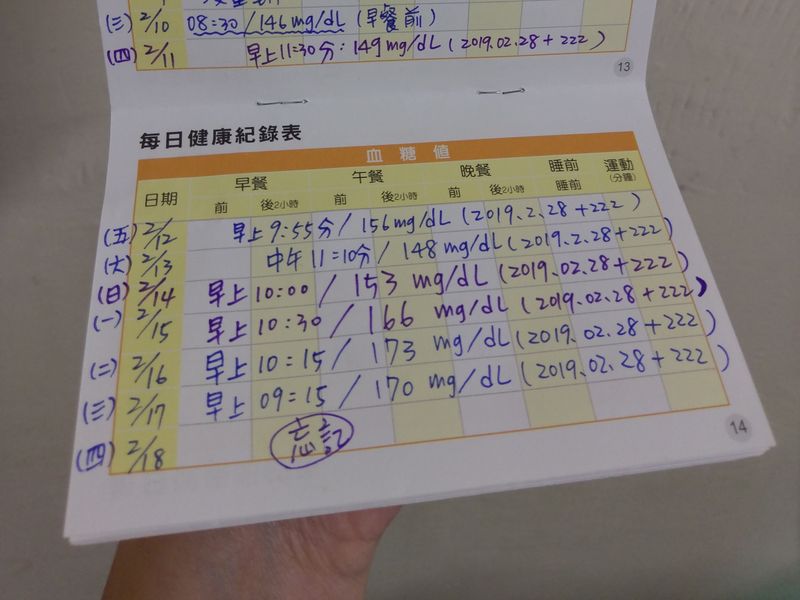 (三) 2/10 08:30/146mg/dL (早餐前)
(四) 2/11 早上11:30分:149mg/dL(2019.02.28+222)
13
每日健康紀錄表
血糖值
日期 早餐 午餐 晚餐 睡前 運動
前 後2小時 前 後2小時 前 後2小時 睡前 (分鐘)
(五) 2/12 早上9:55分/156mg/dL(2019.2.28+222)
(六) 2/13 中午11:10分/148mg/dL(2019.2.28+222)
(日) 2/14 早上10:00/153mg/dL(2019.02.28+222)
(一) 2/15 早上10:30/166mg/dL(2019.02.28+222)
(二) 2/16 早上10:15/173mg/dL(2019.02.28+222)
(三) 2/17 早上09:15/170mg/dL(2019.02.28+222)
(四) 2/18 忘記
14